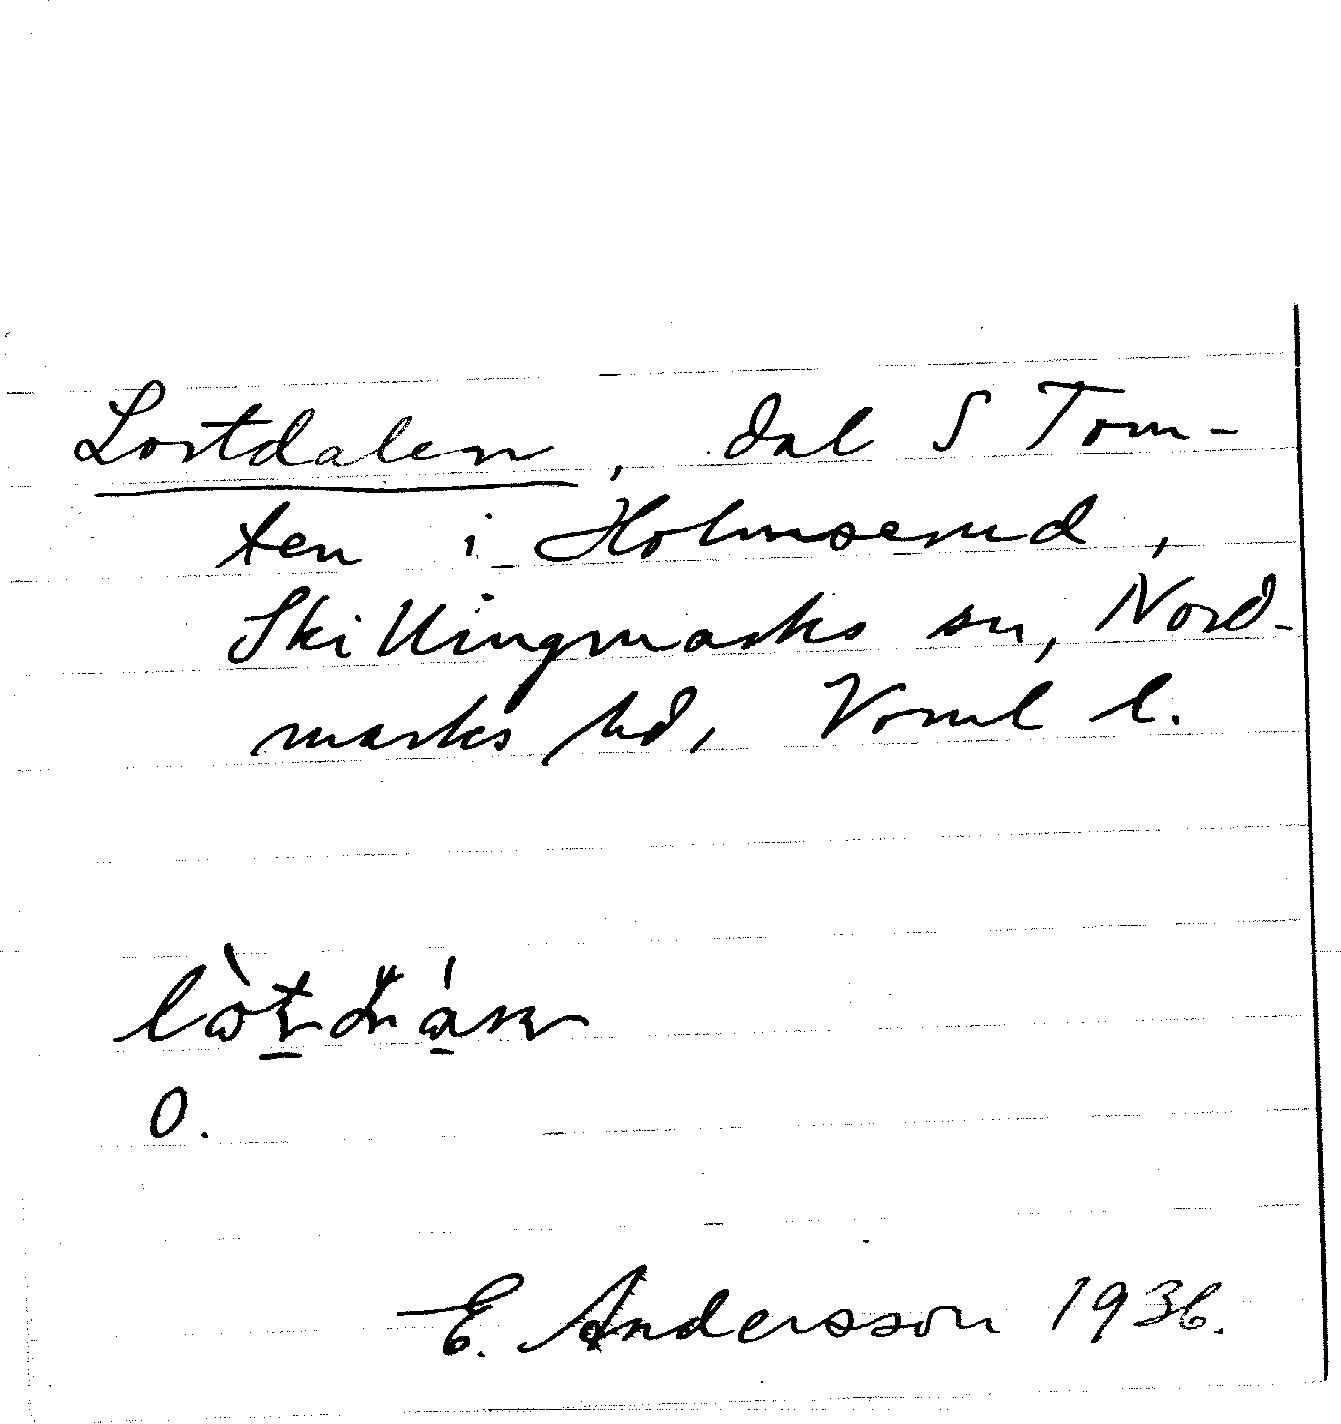 Lortdalen, dal S Tom-
ten i Holmserud,
Skillingmarks sn, Nord-
marks hd, Vrml l.
O.
E. Andersson 1936.